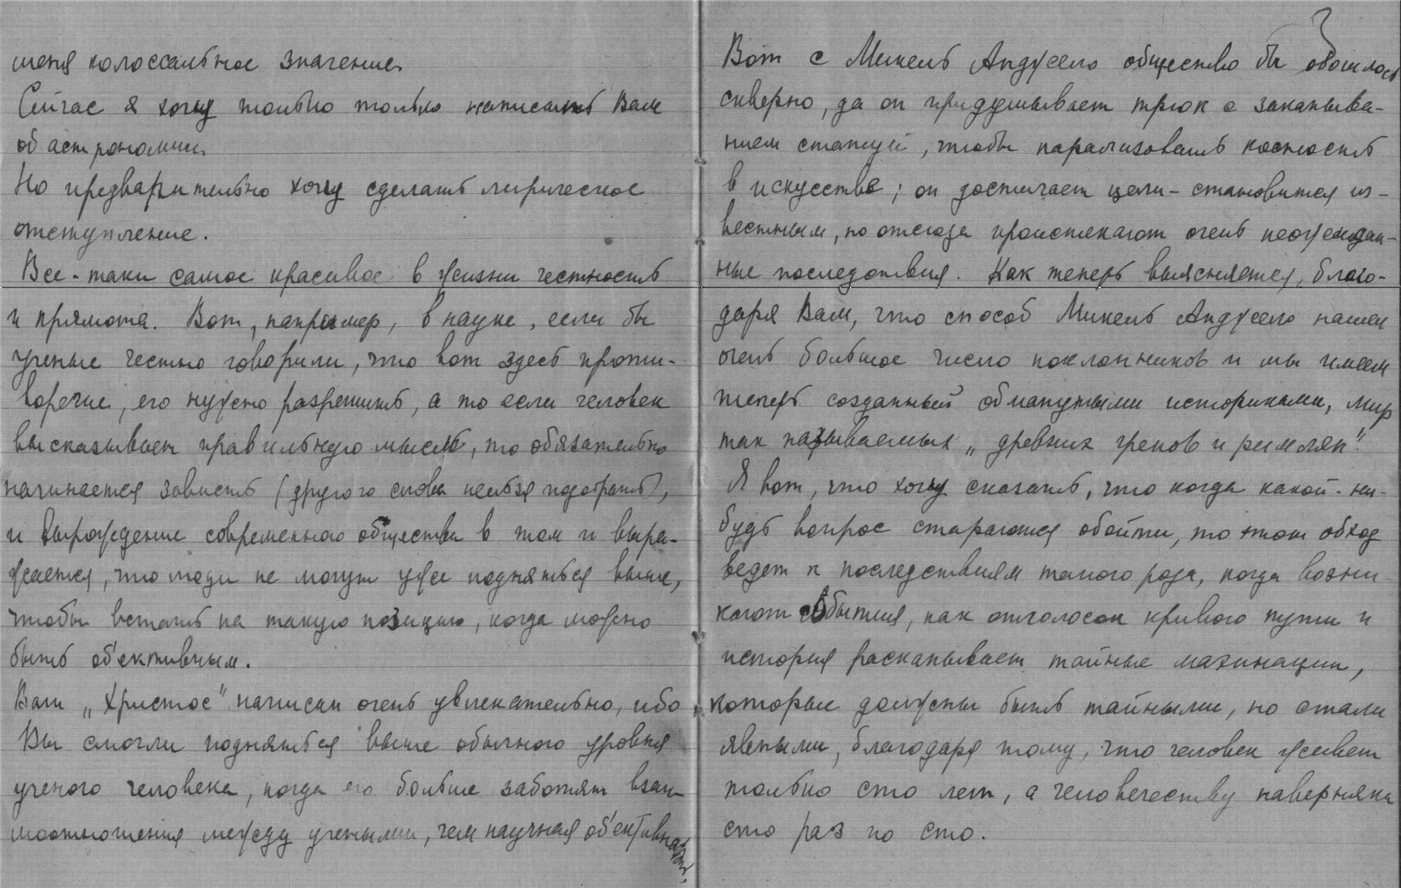 меня колоссальное значение.
Сейчас я хочу только только написать Вам
об астрономии.
Но предварительно хочу сделать лирическое
отступление.
Все-таки самое красивое в жизни честность
и прямота. Вот, например, в науке, если бы
ученые честно говорили, что вот здесь проти-
воречие, его нужно разрешить, а то если человек
высказывает правильную мысль, то обязательно
начинается зависть (другого слова нельзя подобрать),
и вырождение современного общества в том и выра-
жается, что люди не могут уже подняться выше,
чтобы встать на такую позицию, когда можно
быть об'ективным.
Ваш „Христос" написан очень увлекательно, ибо
Вы смогли подняться выше обычного уровня
ученого человека, когда его больше заботят взаи-
моотношения между учеными, чем научная об'ективность.
Вот с Микель Анджело общество бы обошлось
скверно, да он придумывает трюк с закапыва-
нием статуй, чтобы парализовать косность
в искусстве; он достигает цели - становится из-
вестным, но отсюда проистекают очень неожидан-
ные последствия. Как теперь выясняется, благо-
даря Вам, что способ Микель Анджело нашел
очень большое число поклонников и мы имеем
теперь созданный обманутыми историками, мир
так называемых „древних греков и римлян".
Я вот, что хочу сказать, что когда какой-ни-
будь вопрос стараются обойти, то этот обход
ведет к последствиям такого рода, когда возни-
кают события, как отголосок кривого пути и
история раскапывает тайные махинации,
которые должны быть тайными, но стали
явными, благодаря тому, что человек живет
только сто лет, а человечеству наверняка
сто раз по сто.